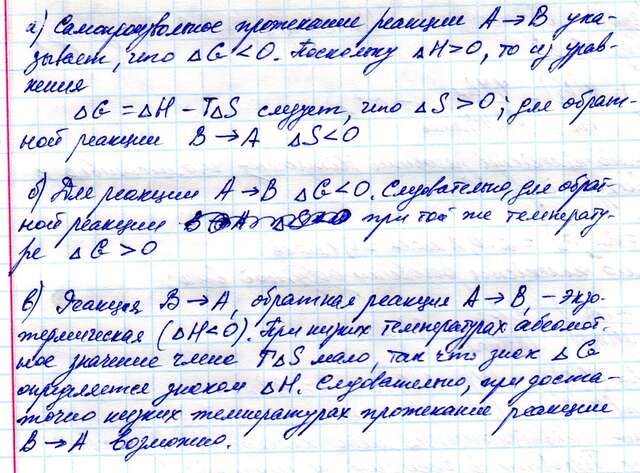 а) Самопроизвольное протекание реакции A → B ука-
зывает, что ΔG < 0. Поскольку ΔH > 0, то из урав-
нения
ΔG = ΔH − TΔS следует, что ΔS > 0; для обрат-
ной реакции B → A ΔS < 0
б) Для реакции A → B ΔG < 0. Следовательно, для обрат-
ной реакции при той же температу-
ре ΔG > 0
в) Реакция B → A, обратная реакции A → B, – экзо-
термическая (ΔH < 0). При низких температурах абсолют.
ное значение члена TΔS мало, так что знак ΔG
определяется знаком ΔH. Следовательно, при доста-
точно низких температурах протекание реакции
B → A возможно.